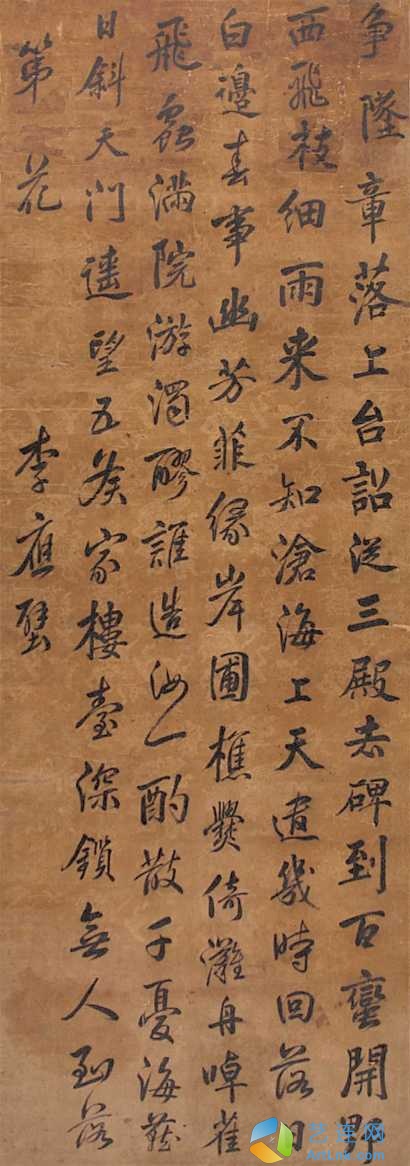 争墜章落上台詔從三殿去碑到百蠻開野
西飛枝細雨来不知滄海上天遣幾時回落日
白邊春事幽芳菲緣岸圃樵爨倚灘舟啅雀
飛蟲滿院游濁醪誰造汝一酌散千憂海燕
日斜天門遥望五矦家樓臺深鎖無人到落
第花
李應